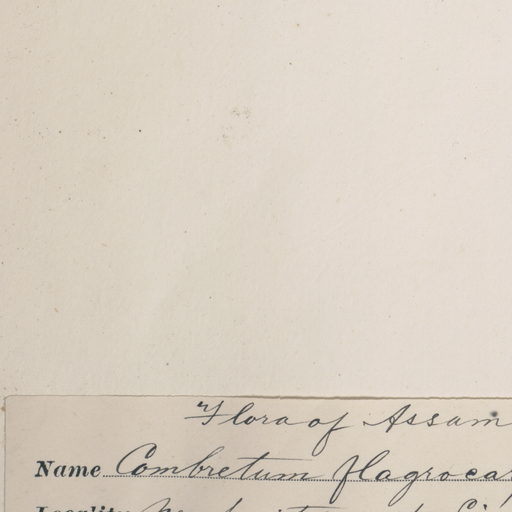 Flora of Assam
Name Combretum flagroca
Locality